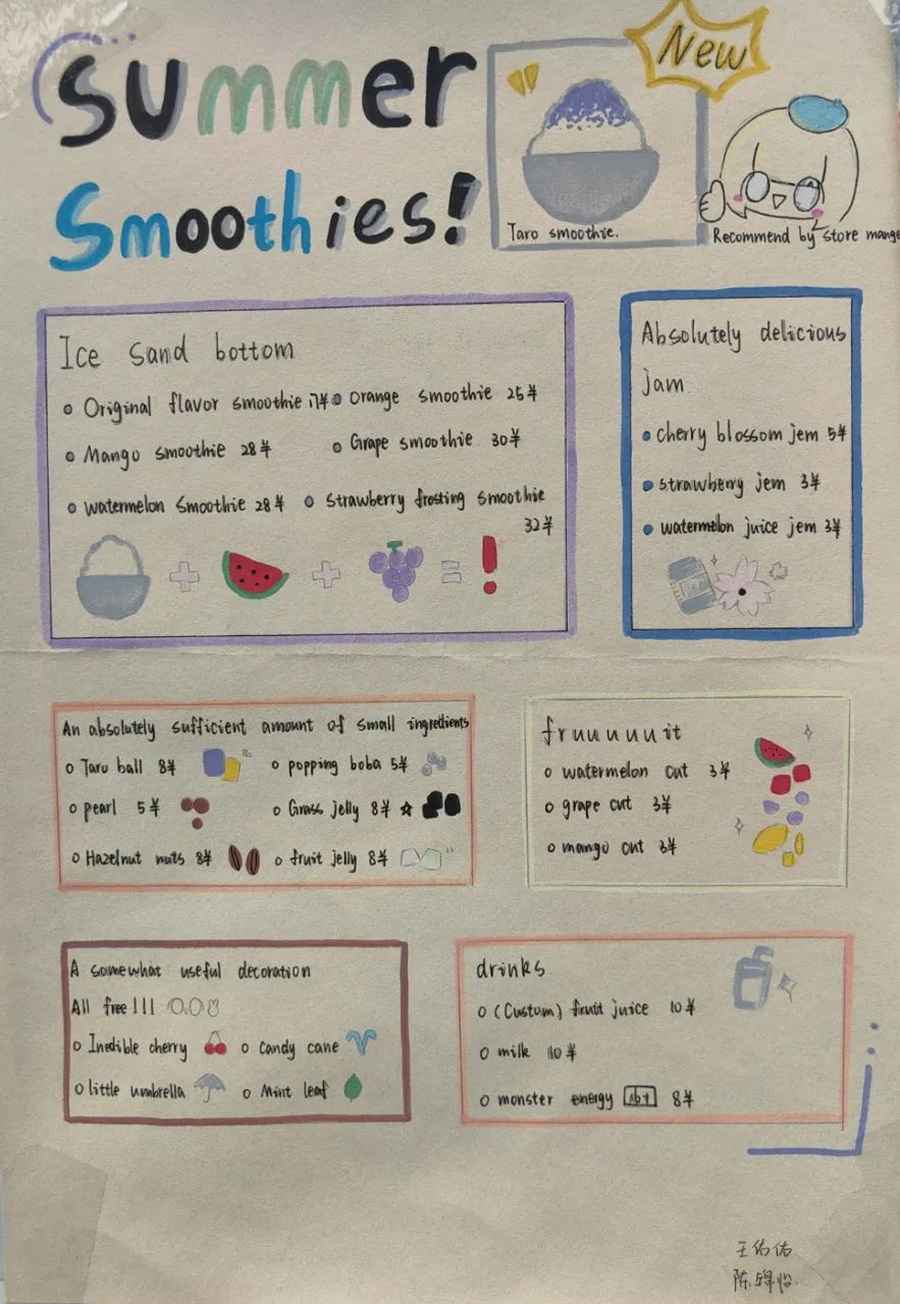 Summer
Smoothies!
New
Taro smoothie.
Recommend by store mange
Ice sand bottom
Original flavor smoothie 17¥
Orange smoothie 25¥
Mango smoothie 28¥
Grape smoothie 30¥
watermelon Smoothie 28¥
Strawberry frosting smoothie
32¥
Absolutely delicious
jam
cherry blossom jem 5¥
strawberry jem 3¥
watermelon juice jem 3¥
An absolutely sufficient amount of small ingredients
Taro ball 8¥
popping boba 5¥
pearl 5¥
Grass jelly 8¥
Hazelnut nuts 8¥
fruit jelly 8¥
fruuuuuit
watermelon cut 3¥
grape cut 3¥
mango cut 3¥
A somewhat useful decoration
All free!!!
Inedible cherry
candy cane
little umbrella
Mint leaf
drinks
(Custom) fruit juice 10¥
milk 10¥
monster energy 8¥
王佑佑
陈